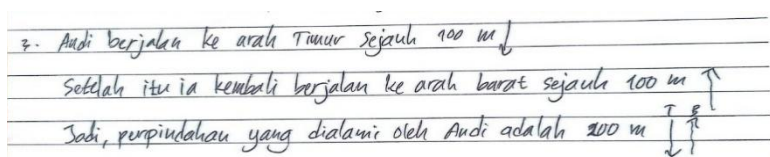 3. Andi berjalan ke arah Timur sejauh 100 m ↓
Setelah itu ia kembali berjalan ke arah barat sejauh 100 m ↑
T B
Jadi, perpindahan yang dialami oleh Andi adalah 200 m ↓↑